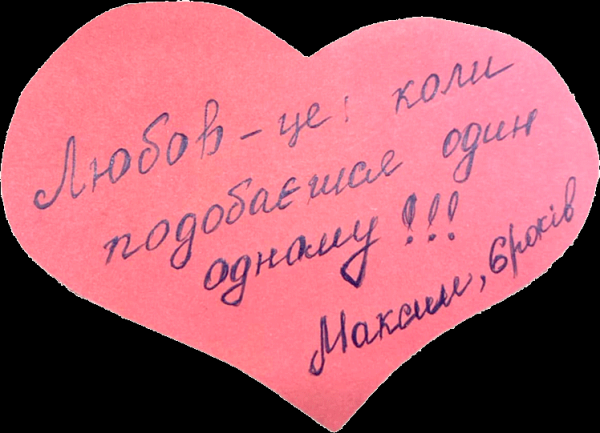 Любов – це: коли
подобаєшся один
одному!!!
Максим, 6 років